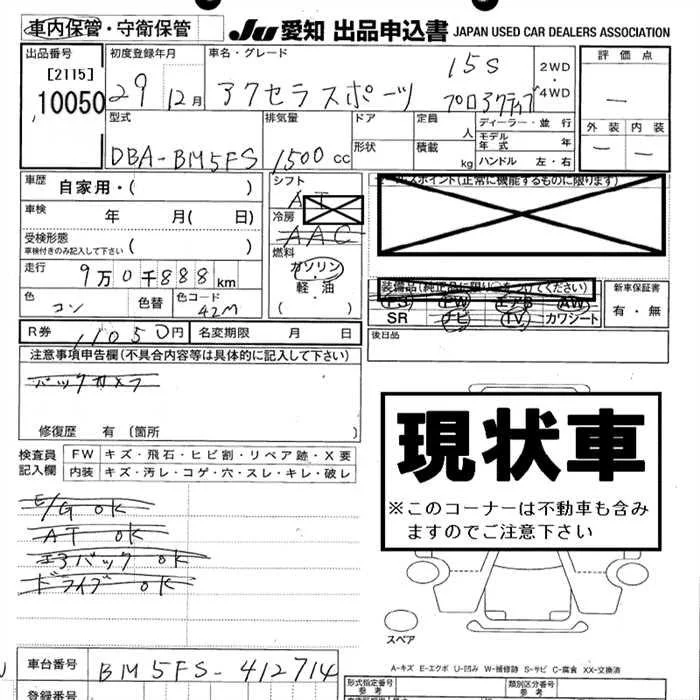 車内保管・守衛保管
JU 愛知 出品申込書 JAPAN USED CAR DEALERS ASSOCIATION
出品番号
[2115]
10050
初度登録年月
29 12月
車名・グレード
アクセラスポーツ
15S
プロアクティブ
2WD
4WD
評価点
—
外装 内装
— —
型式
DBA-BM5FS
排気量
1500 cc
ドア
形状
定員
人
積載
kg
ディーラー・並行
モデル年式 年
ハンドル 左・右
車歴
自家用・( )
車検
年 月( 日)
受検形態
車検付きのみ記入して下さい ( )
走行
9万0千888km
色
コン
色替
色コード
42M
シフト
AT
冷房
AAC
燃料
ガソリン・
軽・油
( )
セールスポイント(正常に機能するものに限ります)
装備品(純正品に限り○をつけてください)
PS PW エアB AW
SR ナビ TV カワシート
新車保証書
有・無
後日品
R券
11050円
名変期限 月 日
注意事項申告欄(不具合内容等は具体的に記入して下さい)
バックカメラ
修復歴 有 〔箇所
検査員
記入欄
FW キズ・飛石・ヒビ割・リペア跡・X要
内装 キズ・汚レ・コゲ・穴・スレ・キレ・破レ
E/G OK
AT OK
エアバック OK
ドライブ OK
現状車
※このコーナーは不動車も含み
ますのでご注意下さい
スペア
A-キズ E-エクボ U-凹み W-補修跡 S-サビ C-腐食 XX-交換済
車台番号
BM5FS-412714
形式指定番号
参考
類別区分番号
参考
登録番号